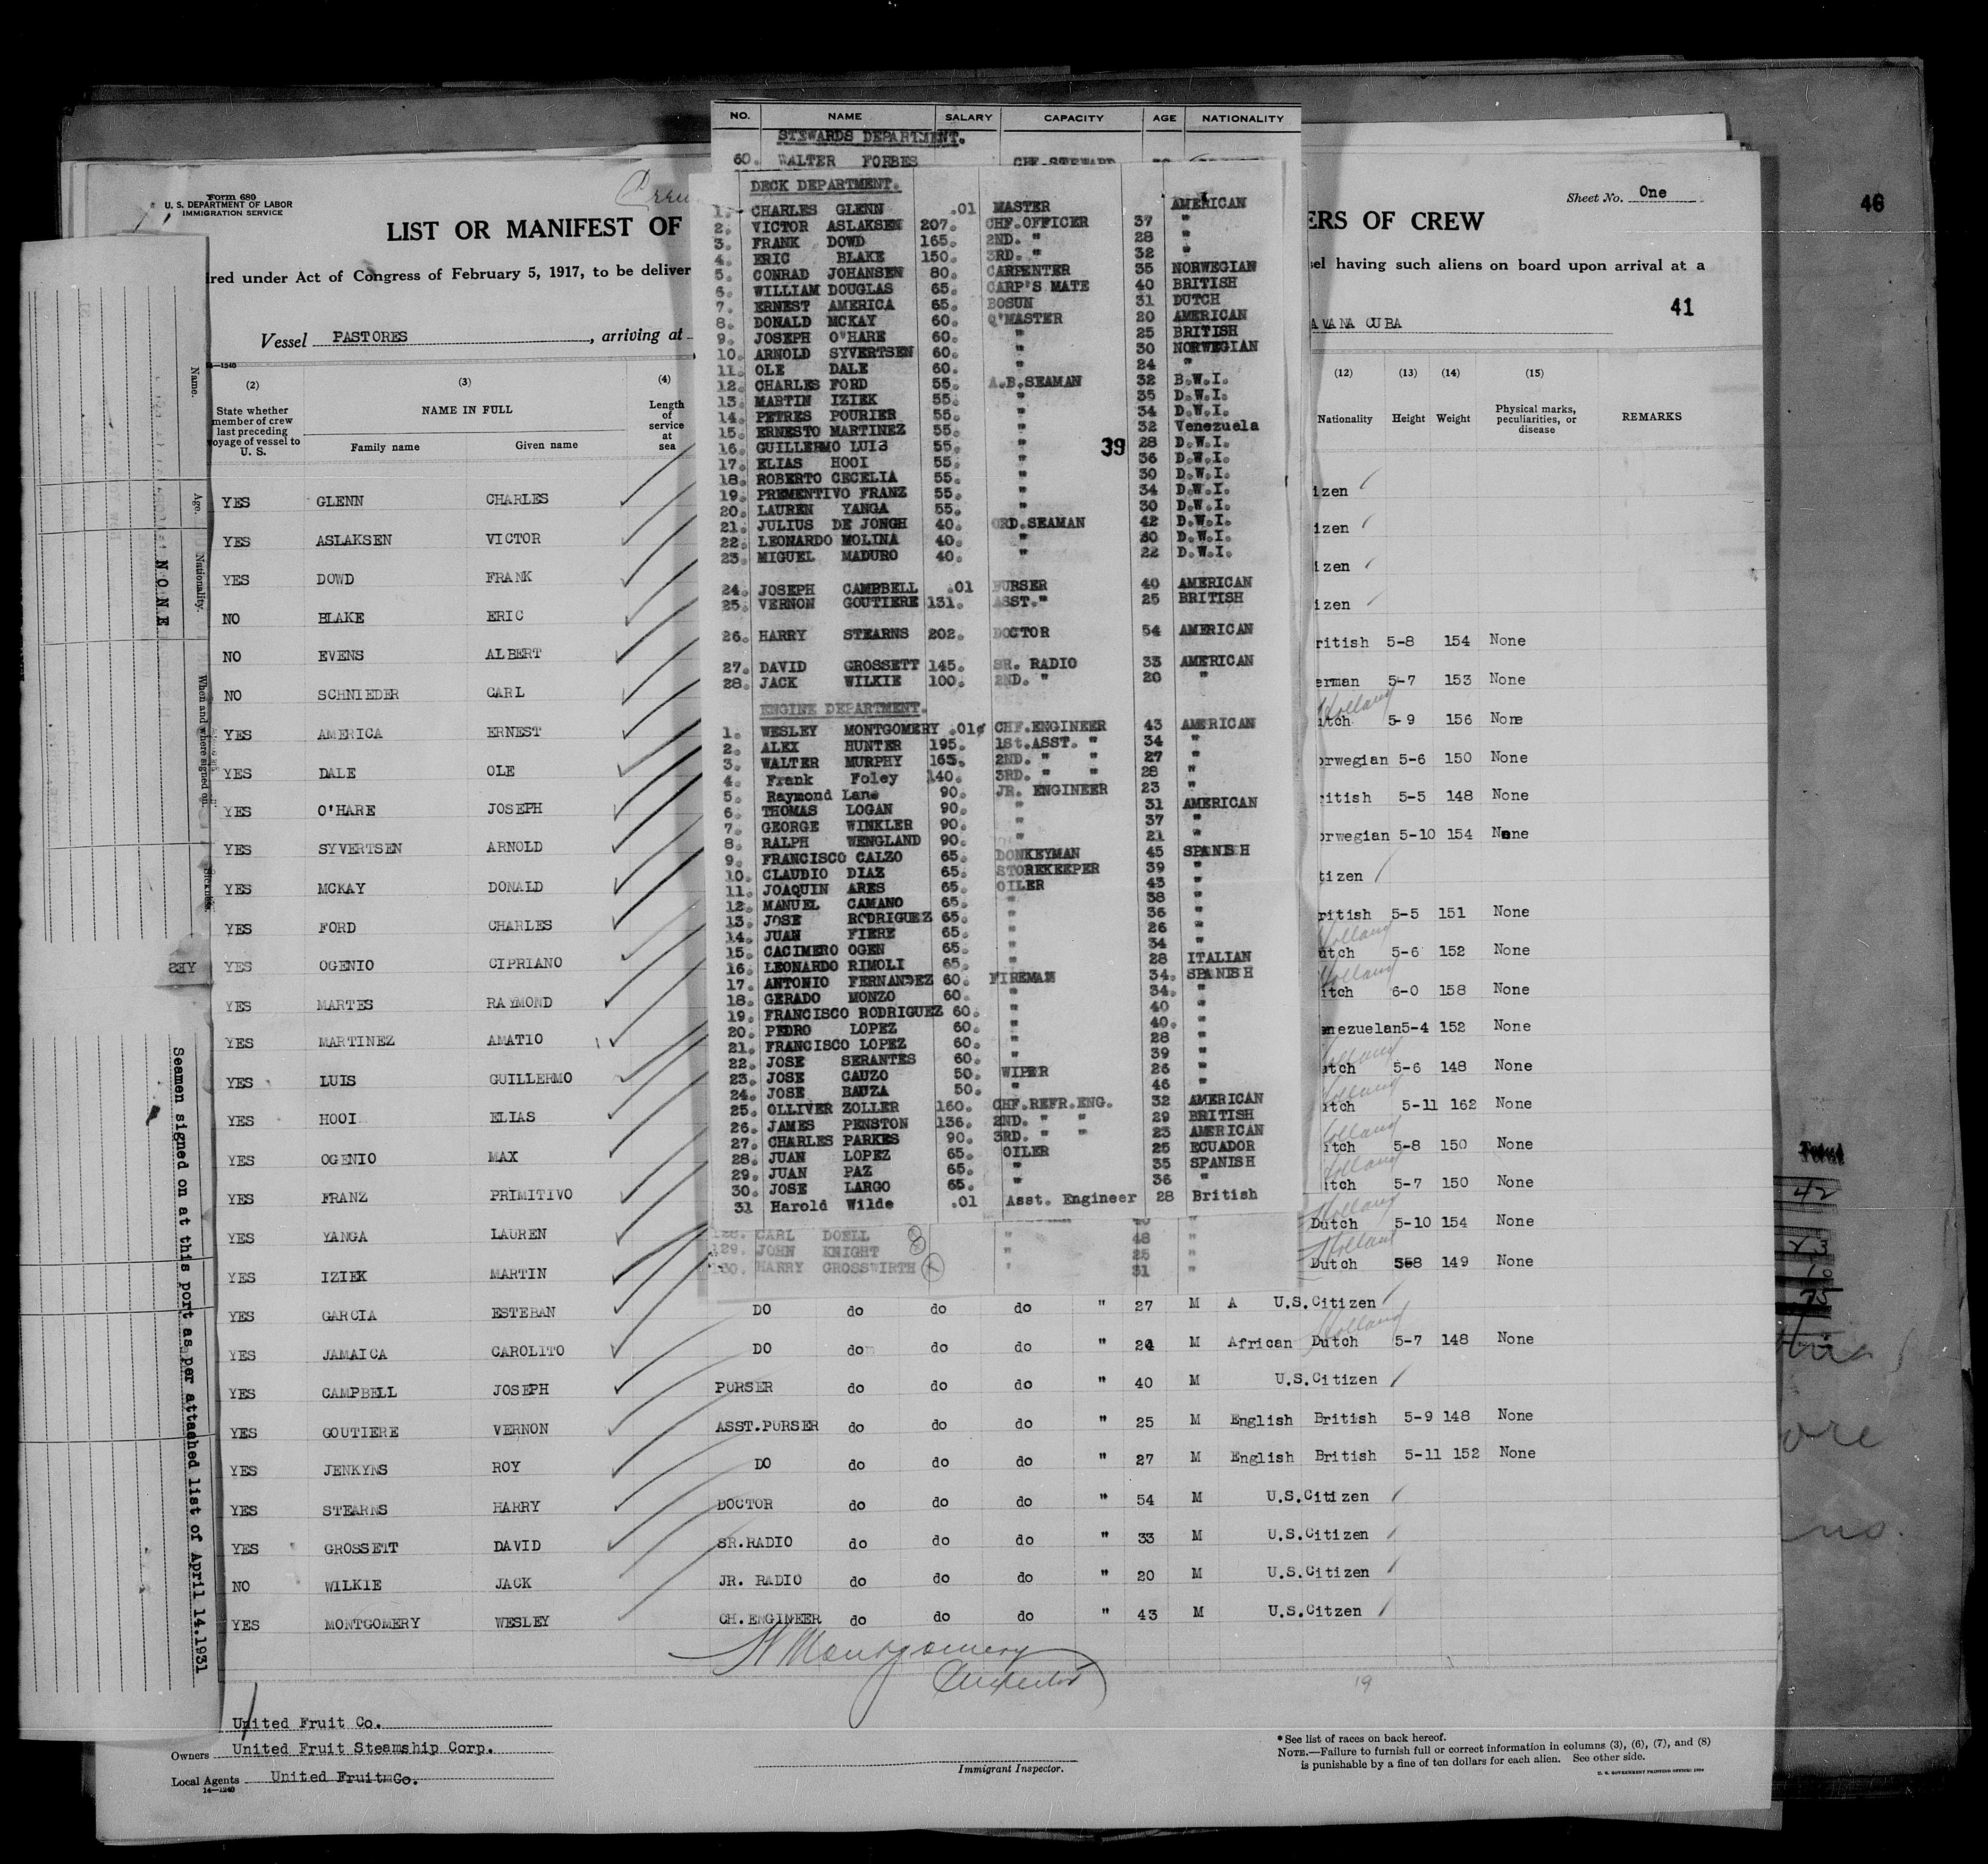 NO. NAME SALARY CAPACITY AGE NATIONALITY
STEWARDS DEPARTMENT.
60. WALTER FORBES CHF.STEWARD
DECK DEPARTMENT.
1. CHARLES GLENN .01 MASTER AMERICAN
2. VICTOR ASLAKSEN 207. CHF.OFFICER 37 "
3. FRANK DOWD 165. 2ND. " 28 "
4. ERIC BLAKE 150. 3RD. " 32 "
5. CONRAD JOHANSEN 80. CARPENTER 35 NORWEGIAN
6. WILLIAM DOUGLAS 65. CARP'S MATE 40 BRITISH
7. ERNEST AMERICA 65. BOSUN 31 DUTCH
8. DONALD MCKAY 60. Q'MASTER 20 AMERICAN
9. JOSEPH O'HARE 60. " 25 BRITISH
10. ARNOLD SYVERTSEN 60. " 30 NORWEGIAN
11. OLE DALE 60. " 24 "
12. CHARLES FORD 55. A.B.SEAMAN 32 B.W.I.
13. MARTIN IZIEK 55. " 35 D.W.I.
14. PETRES POURIER 55. " 34 D.W.I.
15. ERNESTO MARTINEZ 55. " 32 Venezuela
16. GUILLERMO LUIS 55. " 39 28 D.W.I.
17. ELIAS HOOI 55. " 36 D.W.I.
18. ROBERTO CECELIA 55. " 30 D.W.I.
19. PREMENTIVO FRANZ 55. " 34 D.W.I.
20. LAUREN YANGA 55. " 30 D.W.I.
21. JULIUS DE JONGH 40. ORD.SEAMAN 42 D.W.I.
22. LEONARDO MOLINA 40. " 30 D.W.I.
23. MIGUEL MADURO 40. " 22 D.W.I.
24. JOSEPH CAMPBELL .01 PURSER 40 AMERICAN
25. VERNON GOUTIERE 131. ASST." 25 BRITISH
26. HARRY STEARNS 202. DOCTOR 54 AMERICAN
27. DAVID GROSSETT 145. SR. RADIO 33 AMERICAN
28. JACK WILKIE 100. 2ND. " 20 "
ENGINE DEPARTMENT.
1. WESLEY MONTGOMERY .01¢ CHF.ENGINEER 43 AMERICAN
2. ALEX HUNTER 195. 1St.ASST. " 34 "
3. WALTER MURPHY 165. 2ND. " " 27 "
4. Frank Foley 140. 3RD. " " 28 "
5. Raymond Lane 90. JR. ENGINEER 23 "
6. THOMAS LOGAN 90. " 31 AMERICAN
7. GEORGE WINKLER 90. " 37 "
8. RALPH WENGLAND 90. " 21 "
9. FRANCISCO CALZO 65. DONKEYMAN 45 SPANISH
10. CLAUDIO DIAZ 65. STOREKEEPER 39 "
11. JOAQUIN ARES 65. OILER 43 "
12. MANUEL CAMANO 65. " 38 "
13. JOSE RODRIGUEZ 65. " 36 "
14. JUAN FIERE 65. " 26 "
15. CACIMERO OGEN 65. " 34 "
16. LEONARDO RIMOLI 65. " 28 ITALIAN
17. ANTONIO FERNANDEZ 60. FIREMAN 34. SPANISH
18. GERADO MONZO 60. " 34. "
19. FRANCISCO RODRIGUEZ 60. " 40 "
20. PEDRO LOPEZ 60. " 40. "
21. FRANCISCO LOPEZ 60. " 28 "
22. JOSE SERANTES 60. " 39 "
23. JOSE CAUZO 50. WIPER 26 "
24. JOSE BAUZA 50. " 46 "
25. OLLIVER ZOLLER 160. CHF.REFR.ENG. 32 AMERICAN
26. JAMES PENSTON 136. 2ND. " " 29 BRITISH
27. CHARLES PARKES 90. 3RD. " " 23 AMERICAN
28. JUAN LOPEZ 65. OILER 25 ECUADOR
29. JUAN PAZ 65. " 35 SPANISH
30. JOSE LARGO 65. " 36 "
31 Harold Wilde .01 Asst. Engineer 28 British
128. CARL DOELL " 48 "
129. JOHN KNIGHT " 25 "
130. HARRY GROSSWIRTH " 31 "
Form 680
U. S. DEPARTMENT OF LABOR
IMMIGRATION SERVICE
Sheet No. One
46
LIST OR MANIFEST OF ERS OF CREW
ired under Act of Congress of February 5, 1917, to be deliver sel having such aliens on board upon arrival at a
41
Vessel PASTORES, arriving at AVANA CUBA
(2) (3) (4) (12) (13) (14) (15)
State whether member of crew last preceding voyage of vessel to U. S. NAME IN FULL Family name Given name Length of service at sea Nationality Height Weight Physical marks, peculiarities, or disease REMARKS
YES GLENN CHARLES izen
YES ASLAKSEN VICTOR izen
YES DOWD FRANK izen
NO BLAKE ERIC izen
NO EVENS ALBERT ritish 5-8 154 None
NO SCHNIEDER CARL erman 5-7 153 None
YES AMERICA ERNEST Holland utch 5-9 156 None
YES DALE OLE orwegian 5-6 150 None
YES O'HARE JOSEPH ritish 5-5 148 None
YES SYVERTSEN ARNOLD orwegian 5-10 154 None
YES MCKAY DONALD tizen
YES FORD CHARLES ritish 5-5 151 None
YES OGENIO CIPRIANO Holland utch 5-6 152 None
YES MARTES RAYMOND Holland itch 6-0 158 None
YES MARTINEZ AMATIO enezuelan 5-4 152 None
YES LUIS GUILLERMO Holland utch 5-6 148 None
YES HOOI ELIAS Holland itch 5-11 162 None
YES OGENIO MAX Holland itch 5-8 150 None
YES FRANZ PRIMITIVO Holland itch 5-7 150 None
YES YANGA LAUREN Holland Dutch 5-10 154 None
YES IZIEK MARTIN Holland Dutch 558 149 None
YES GARCIA ESTEBAN DO do do do " 27 M A U.S.Citizen
YES JAMAICA CAROLITO DO do do do " 24 M African Holland Dutch 5-7 148 None
YES CAMPBELL JOSEPH PURSER do do do " 40 M U.S.Citizen
YES GOUTIERE VERNON ASST.PURSER do do do " 25 M English British 5-9 148 None
YES JENKYNS ROY DO do do do " 27 M English British 5-11 152 None
YES STEARNS HARRY DOCTOR do do do " 54 M U.S.Citizen
YES GROSSETT DAVID SR.RADIO do do do " 33 M U.S.Citizen
NO WILKIE JACK JR. RADIO do do do " 20 M U.S.Citizen
YES MONTGOMERY WESLEY CH.ENGINEER do do do " 43 M U.S.Citzen
Montgomery
19
Owners United Fruit Co.
United Fruit Steamship Corp.
Local Agents United Fruit Co.
14—1240
Immigrant Inspector.
* See list of races on back hereof.
NOTE.—Failure to furnish full or correct information in columns (3), (6), (7), and (8)
is punishable by a fine of ten dollars for each alien. See other side.
Name.
Age.
Nationality.
When and where signed on.
Sickness.
NONE
YES
Seamen signed on at this port as per attached list of April 14.1931
Total
42